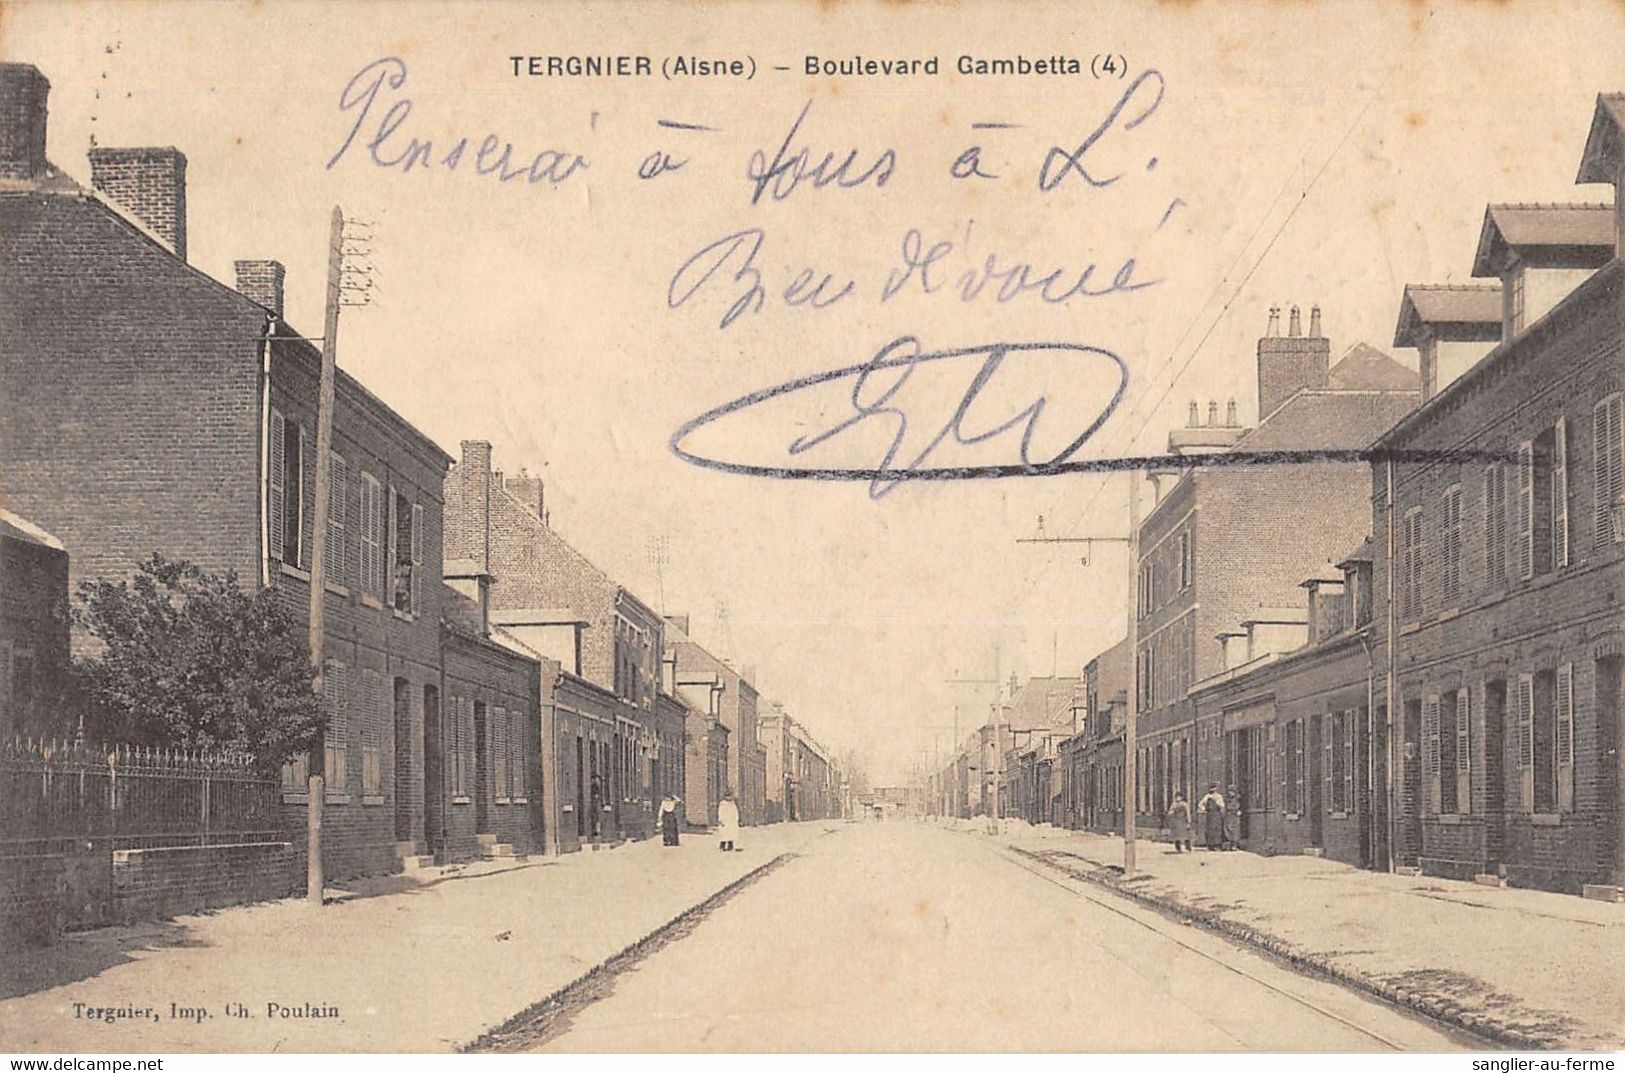 TERGNIER (Aisne) – Boulevard Gambetta (4)
Penserai à tous à L.
Bien dévoué
Tergnier, Imp. Ch. Poulain
www.delcampe.net
sanglier-au-ferme